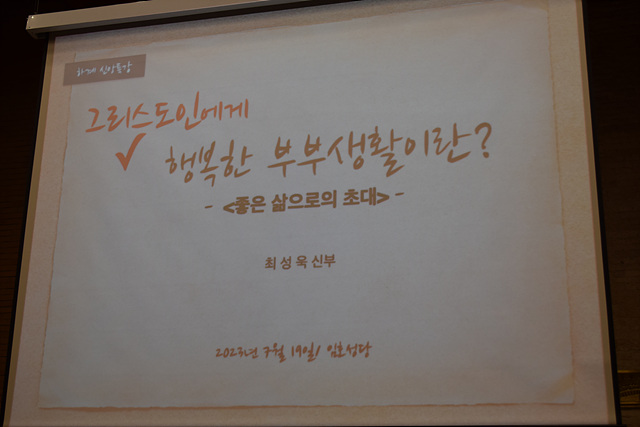 하계 신앙특강
그리스도인에게
행복한 부부생활이란?
- <좋은 삶으로의 초대> -
최성욱 신부
2023년 7월 19일/ 임호성당